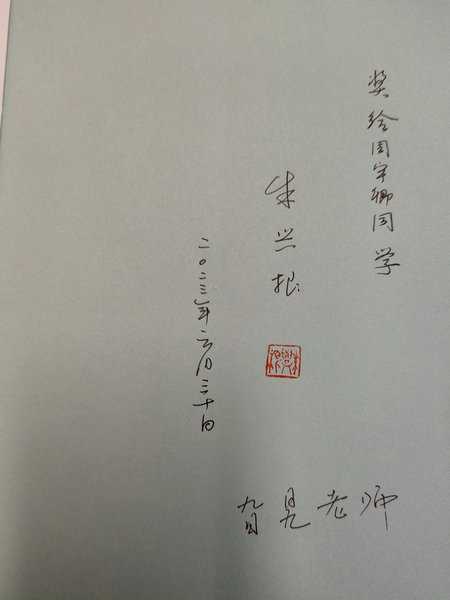 奖给周宇卿同学
朱兴根
二〇二三年六月三十日
旮旯老师